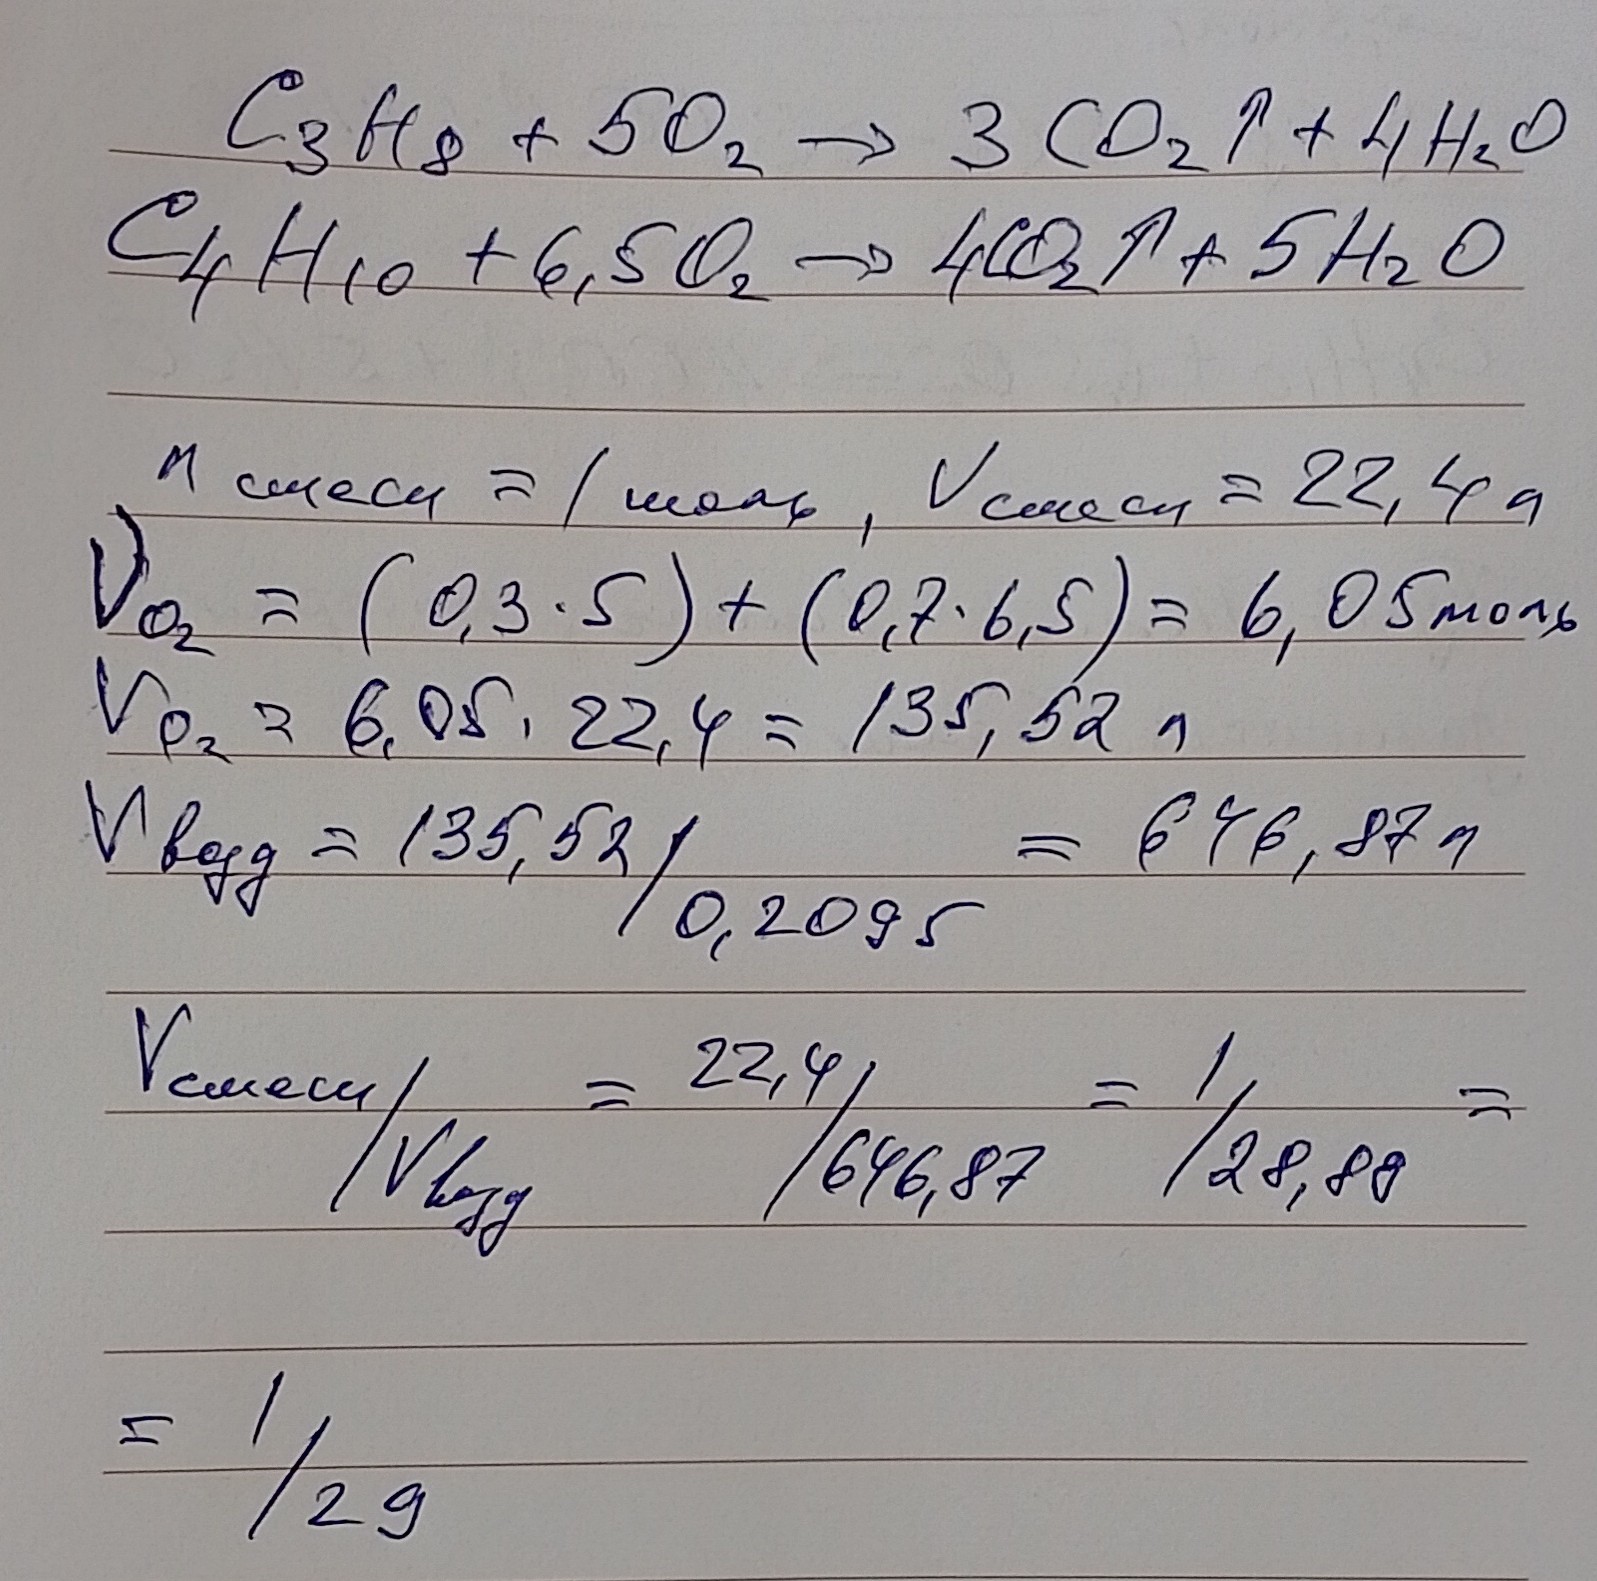 C₃H₈ + 5O₂ → 3CO₂↑ + 4H₂O
C₄H₁₀ + 6,5O₂ → 4CO₂↑ + 5H₂O
n смеси = 1 моль, V смеси = 22,4 л
V O₂ = (0,3·5) + (0,7·6,5) = 6,05 моль
V O₂ = 6,05·22,4 = 135,52 л
V возд = 135,52/0,2095 = 646,87 л
V смеси/V возд = 22,4/646,87 = 1/28,88 =
= 1/29